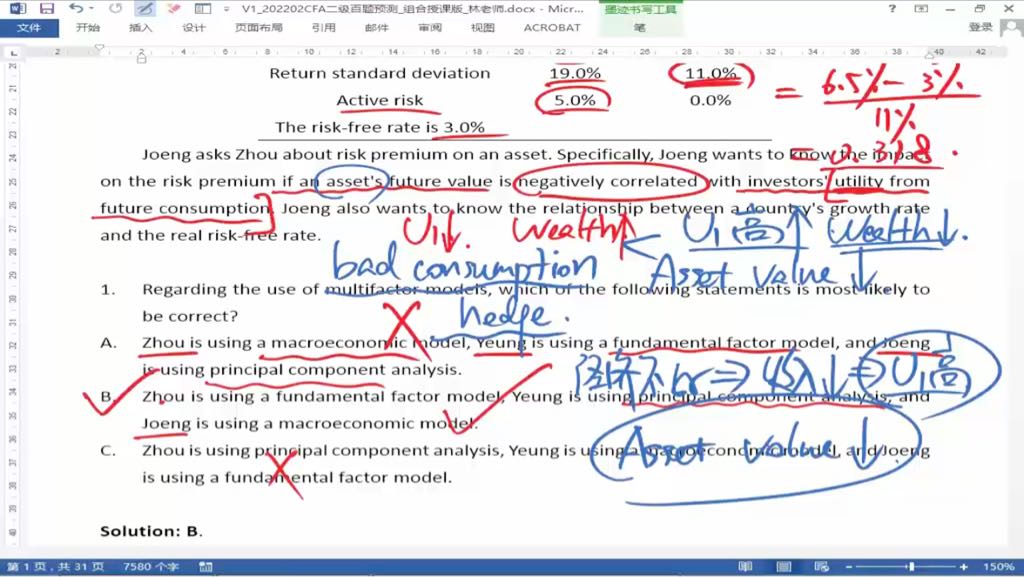 V1_202202CFA二级百题预测_组合授课版_林老师.docx - Micr...
墨迹书写工具
文件 开始 插入 设计 页面布局 引用 邮件 审阅 视图 ACROBAT 笔 登录
2 2 4 6 8 10 12 14 16 18 20 22 24 26 28 30 32 34 36 38 40 42
Return standard deviation 19.0% 11.0%
Active risk 5.0% 0.0%
= 6.5% - 3%
11%
The risk-free rate is 3.0%
= 0.318.
Joeng asks Zhou about risk premium on an asset. Specifically, Joeng wants to know the impact
on the risk premium if an asset's future value is negatively correlated with investors' utility from
future consumption. Joeng also wants to know the relationship between a country's growth rate
and the real risk-free rate.
U1↓. Wealth↑ ← U1(高)↑ Wealth↓.
bad consumption Asset value ↓
1. Regarding the use of multifactor models, which of the following statements is most likely to
be correct?
hedge.
A. Zhou is using a macroeconomic model, Yeung is using a fundamental factor model, and Joeng
is using principal component analysis.
经济不好⇒收入↓⇒U1高
B. Zhou is using a fundamental factor model, Yeung is using principal component analysis, and
Joeng is using a macroeconomic model.
Asset value ↓
C. Zhou is using principal component analysis, Yeung is using a macroeconomic model, and Joeng
is using a fundamental factor model.
Solution: B.
第 1 页，共 31 页 7580 个字 150%